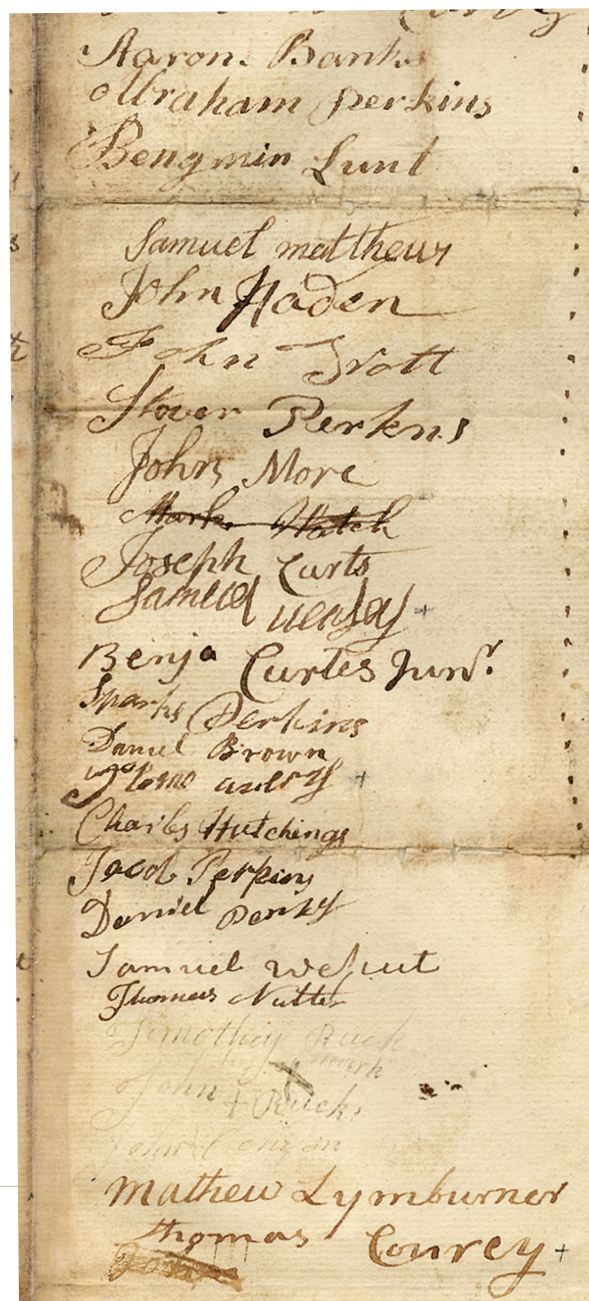 Aaron Banks
Abraham Perkins
Bengmin Lunt
Samuel matthews
John Haden
John Trott
Stover Perkens
John More
Mark Hatch
Joseph Curts
Samuel veasey +
Benja Curtes Junr
Sparks Perkins
Daniel Brown
Charles Hutchings
Jacob Perkins
Daniel
Samuel wescut
Thomas Nutter
Timothey Buck
mark
John + Bucks
John
Mathew Lymburner
thomas Courey +